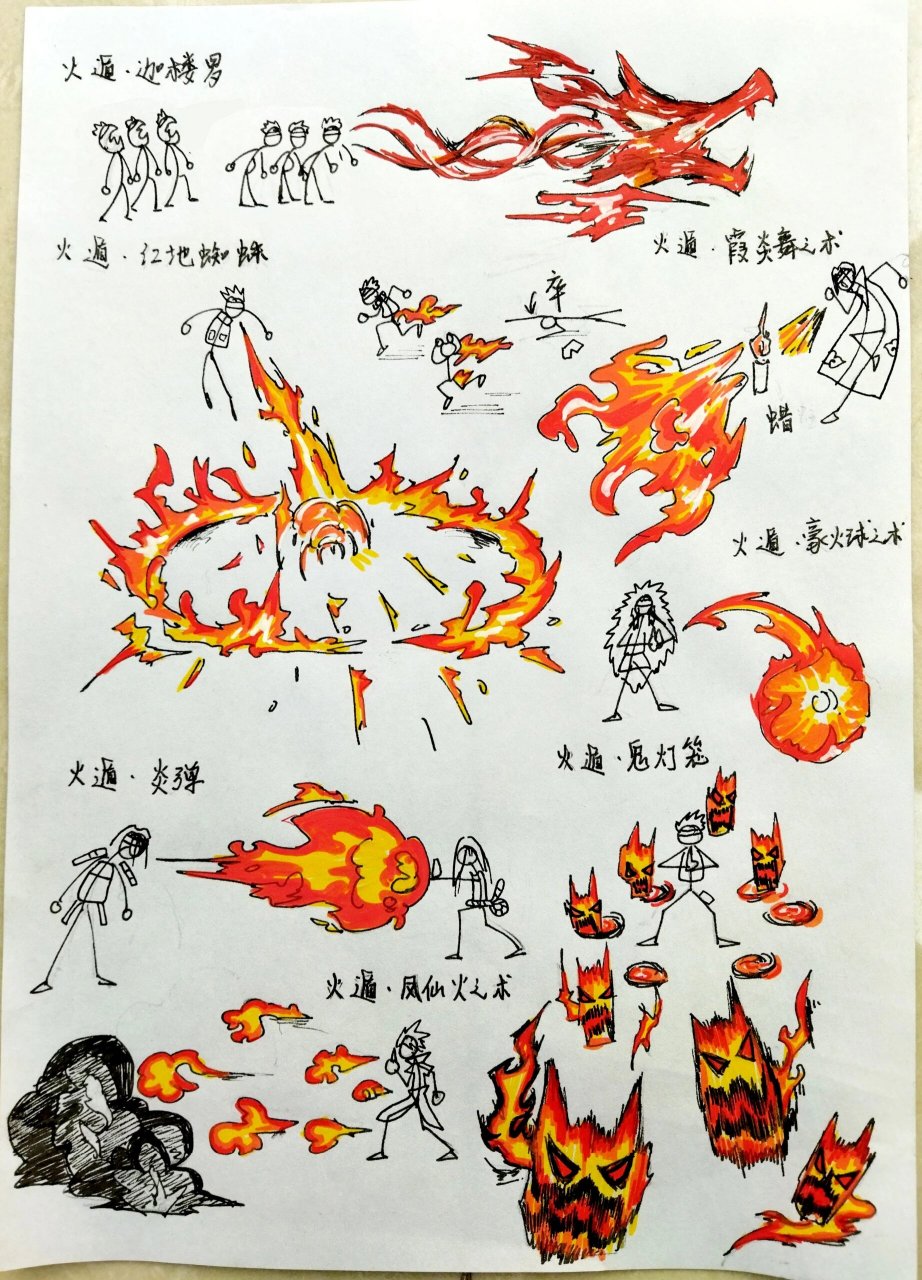 火遁·迦楼罗
火遁·红地蜘蛛
火遁·霞炎舞之术
卒
蜡
火遁·豪火球之术
火遁·炎弹
火遁·鬼灯笼
火遁·凤仙火之术